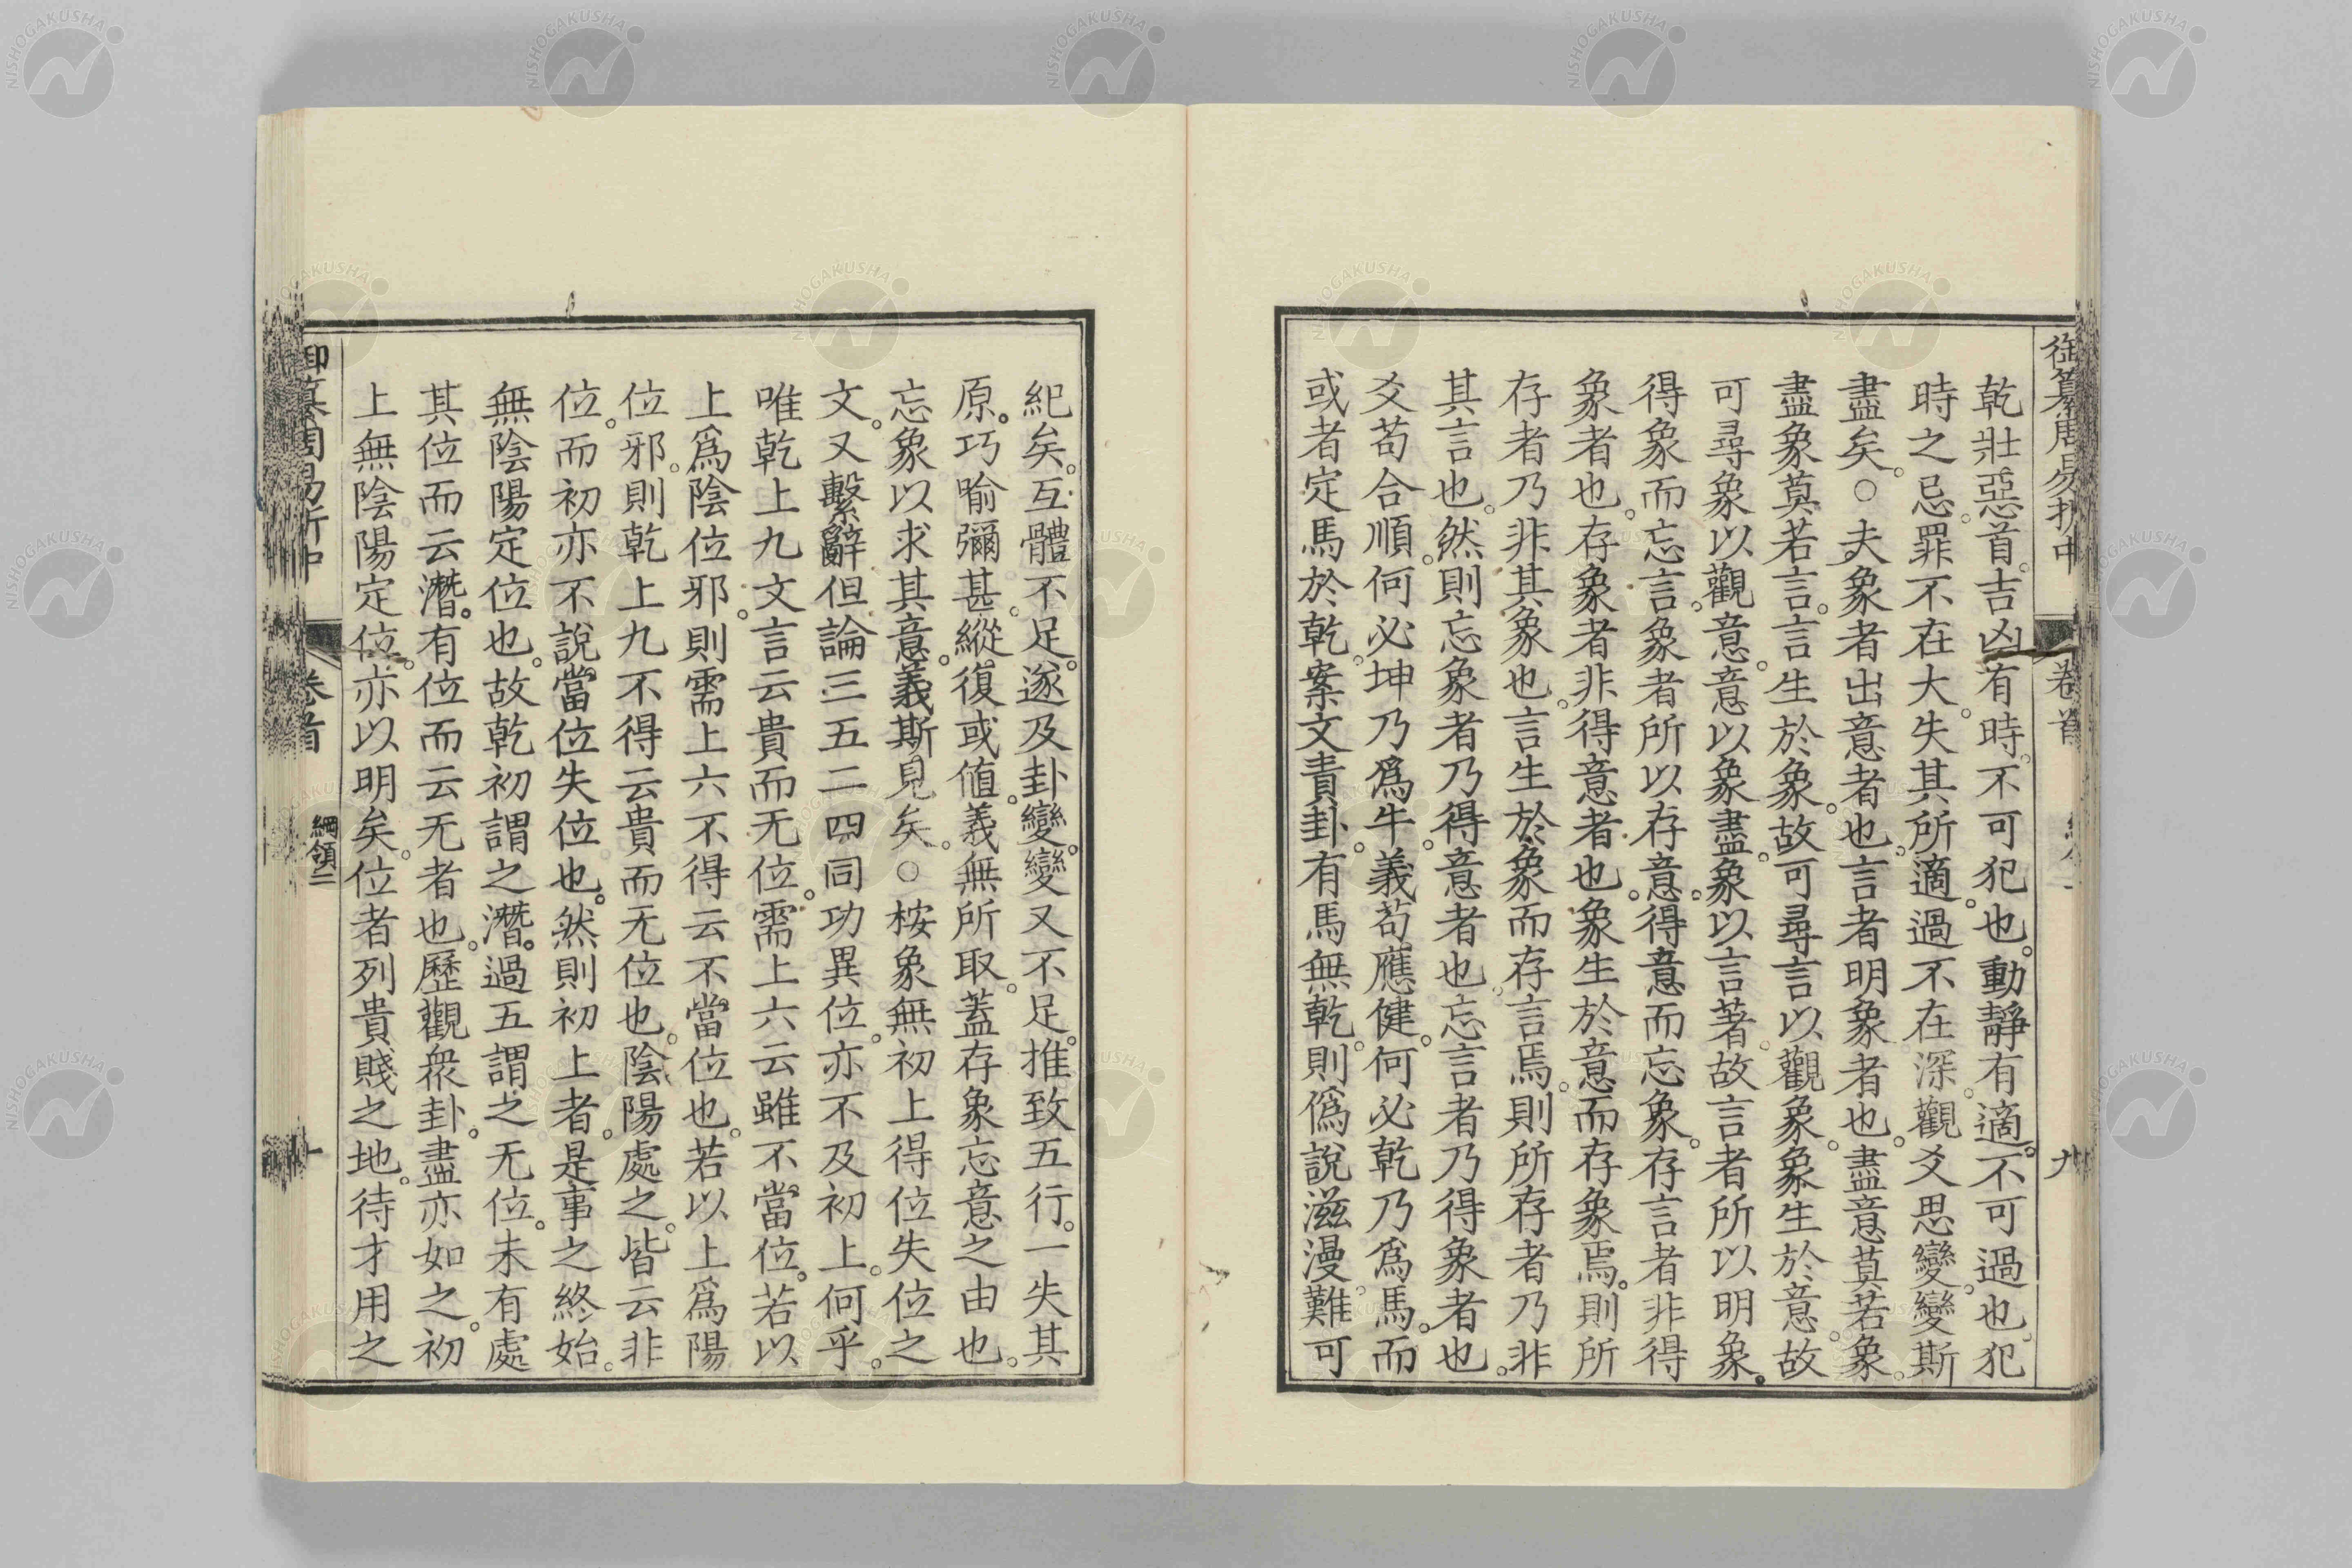 御纂周易折中 卷首 九
乾壯惡首。吉凶有時。不可犯也。動靜有適。不可過也。犯
時之忌。罪不在大。失其所適。過不在深。觀爻思變。變斯
盡矣。○夫象者出意者也。言者明象者也。盡意莫若象。
盡象莫若言。言生於象。故可尋言以觀象。象生於意。故
可尋象以觀意。意以象盡。象以言著。故言者所以明象。
得象而忘言。象者所以存意。得意而忘象。存言者非得
象者也。存象者非得意者也。象生於意而存象焉。則所
存者乃非其象也。言生於象而存言焉。則所存者乃非
其言也。然則忘象者乃得意者也。忘言者乃得象者也。
爻苟合順。何必坤乃爲牛。義苟應健。何必乾乃爲馬。而
或者定馬於乾。案文責卦。有馬無乾。則僞說滋漫。難可
紀矣。互體不足。遂及卦變。變又不足。推致五行。一失其
原。巧喻彌甚。縱復或値。義無所取。蓋存象忘意之由也。
忘象以求其意。義斯見矣。○桉象無初上得位失位之
文。又繫辭但論三五二四同功異位。亦不及初上。何乎。
唯乾上九文言云貴而无位。需上六云雖不當位。若以
上爲陰位邪。則需上六不得云不當位也。若以上爲陽
位邪。則乾上九不得云貴而无位也。陰陽處之。皆云非
位。而初亦不說當位失位也。然則初上者。是事之終始。
無陰陽定位也。故乾初謂之潛。過五謂之无位。未有處
其位而云潛。有位而云无者也。歷觀衆卦。盡亦如之。初
上無陰陽定位。亦以明矣。位者列貴賤之地。待才用之
御纂周易折中 卷首 綱領二 十
NISHOGAKUSHA